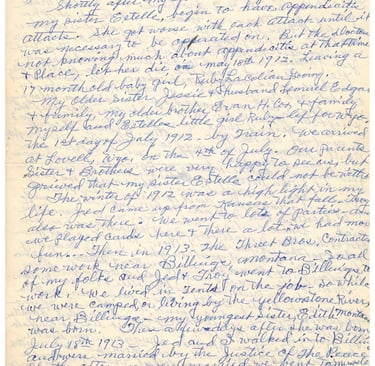 Shortly after my
my sister Estelle, begin to have appendicitis
attacks. She got worse with each attach until it
was necessary to be operated on. But the doctors
not knowing much about appendicitis at that time
& Place, let her die on may 10th 1912. Leaving a
17 month old baby girl, Ruby
My older sister Jessie & husband Lemuel Edgar
& family, my older brother Evan H. Cox, & family
myself and Estelles little girl Ruby left for Wyo.
the 1st day of July 1912 - by train. We arrived
at Lovell, Wyo. on the 4th of July. Our Parents
Sister & Brothers were very happy to see us, but
grieved that my sister Estelle could not be with us
The winter of 1912 was a high light in my
life. Jed came up from Kansas that fall. Troy
also was there. We went to lots of parties and
we played cards here & there a lot. We had more
fun. Then in 1913 - The Threet Bros, Contracted
some work near Billings, Montana - So all
of my folks and Jed & Troy went to Billings to
work. We lived in Tents on the job - so while
we were camped or living by the Yellowstone River,
near Billings - my youngest sister, Edith Montana
was born. Then a few days after she was born
July 18th 1913 - Jed and I walked in to Billings
and were married by the Justice of The Peace
married we went to